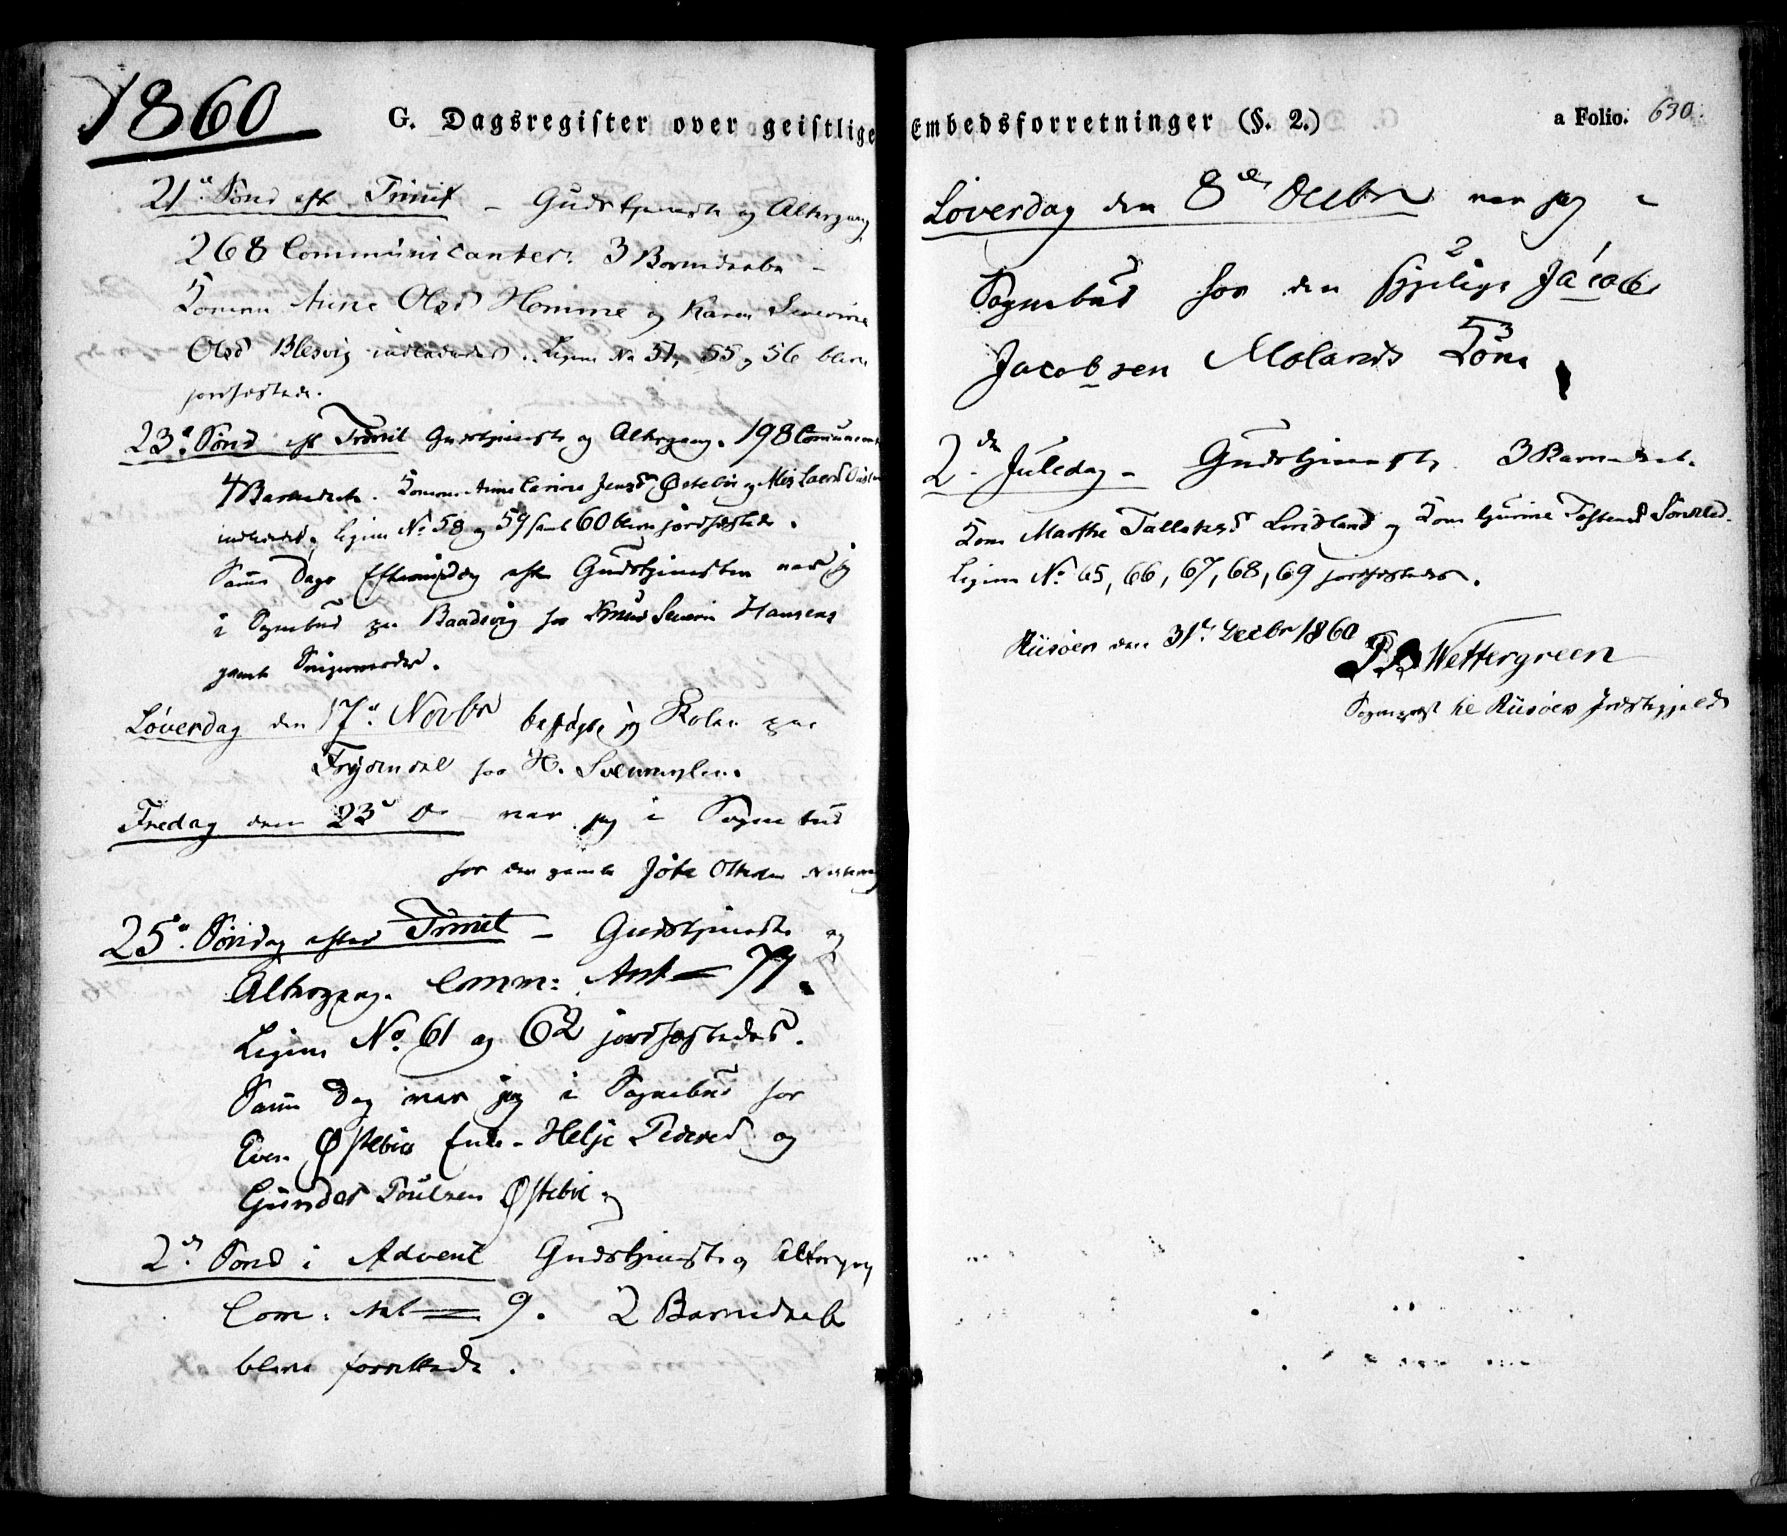 1860
G. Dagsregister over geistlige Embedsforretninger (§. 2.)
a Folio. 630.
21de Sønd eft Trinit – Gudstjeneste og Altergang
268 Communicanter. 3 Barnedaabe –
Konerne Anne Olsd Homme og Karen Severine
Olsd Blesvig indledede. Ligene No 54, 55 og 56 bleve
jordfæstede.
23de Sønd eft Trinit Gudstjeneste og Altergang. 198 Commun
4 Barnedaabe. Konerne Anne Jensd Østebø og
indledede. Ligene No 58 og 59 samt 60 bleve jordfæstede.
Samme Dags Eftermiddag efter Gudstjenesten var jeg
i Sognebud paa Baadsvig for Severin Hansens
gamle Svigermoder.
Løverdag den 17de Novbr besøgte jeg Skolen paa
Frydendal for H.
Fredag den 23de Do var jeg i Sognebud
for den gamle
25de Søndag efter Trinit – Gudstjeneste og
Altergang. Comm: Ant = 77.
Ligene No. 61 og 62 jordfæstedes.
Samme Dag var jeg i Sognebud for
Even Østebøs Enke – Helje Pedersd og
Gunder Poulsen Østebø.
2den Sønd i Advent Gudstjeneste og Altergang
Com: Ant = 9. 2 Barnedaab
bleve forrettede.
Løverdag den 8de Decbr var jeg i
Sognebud for den Jacob
Jacobsen Molands Kone
2den Juledag – Gudstjeneste 3 Barnedaab.
Kone Marthe Tallaksd Lindland og Kone Gurine Tostensd
Ligene No 65, 66, 67, 68, 69 jordfæstedes.
Riisøer den 31te Decbr 1860
Wettergreen
Sognepræst til Riisøer Præstegjeld